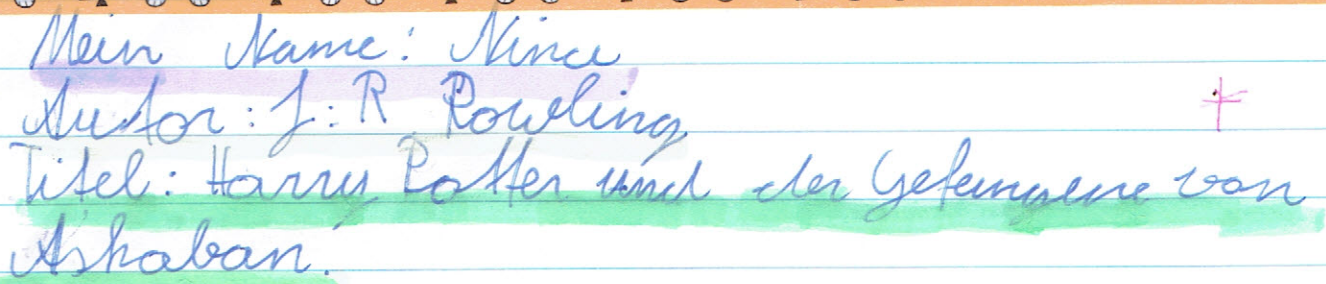 Mein Name: Nina
Autor: J: R. Rowling
Titel: Harry Potter und der Gefangene von
Askaban.